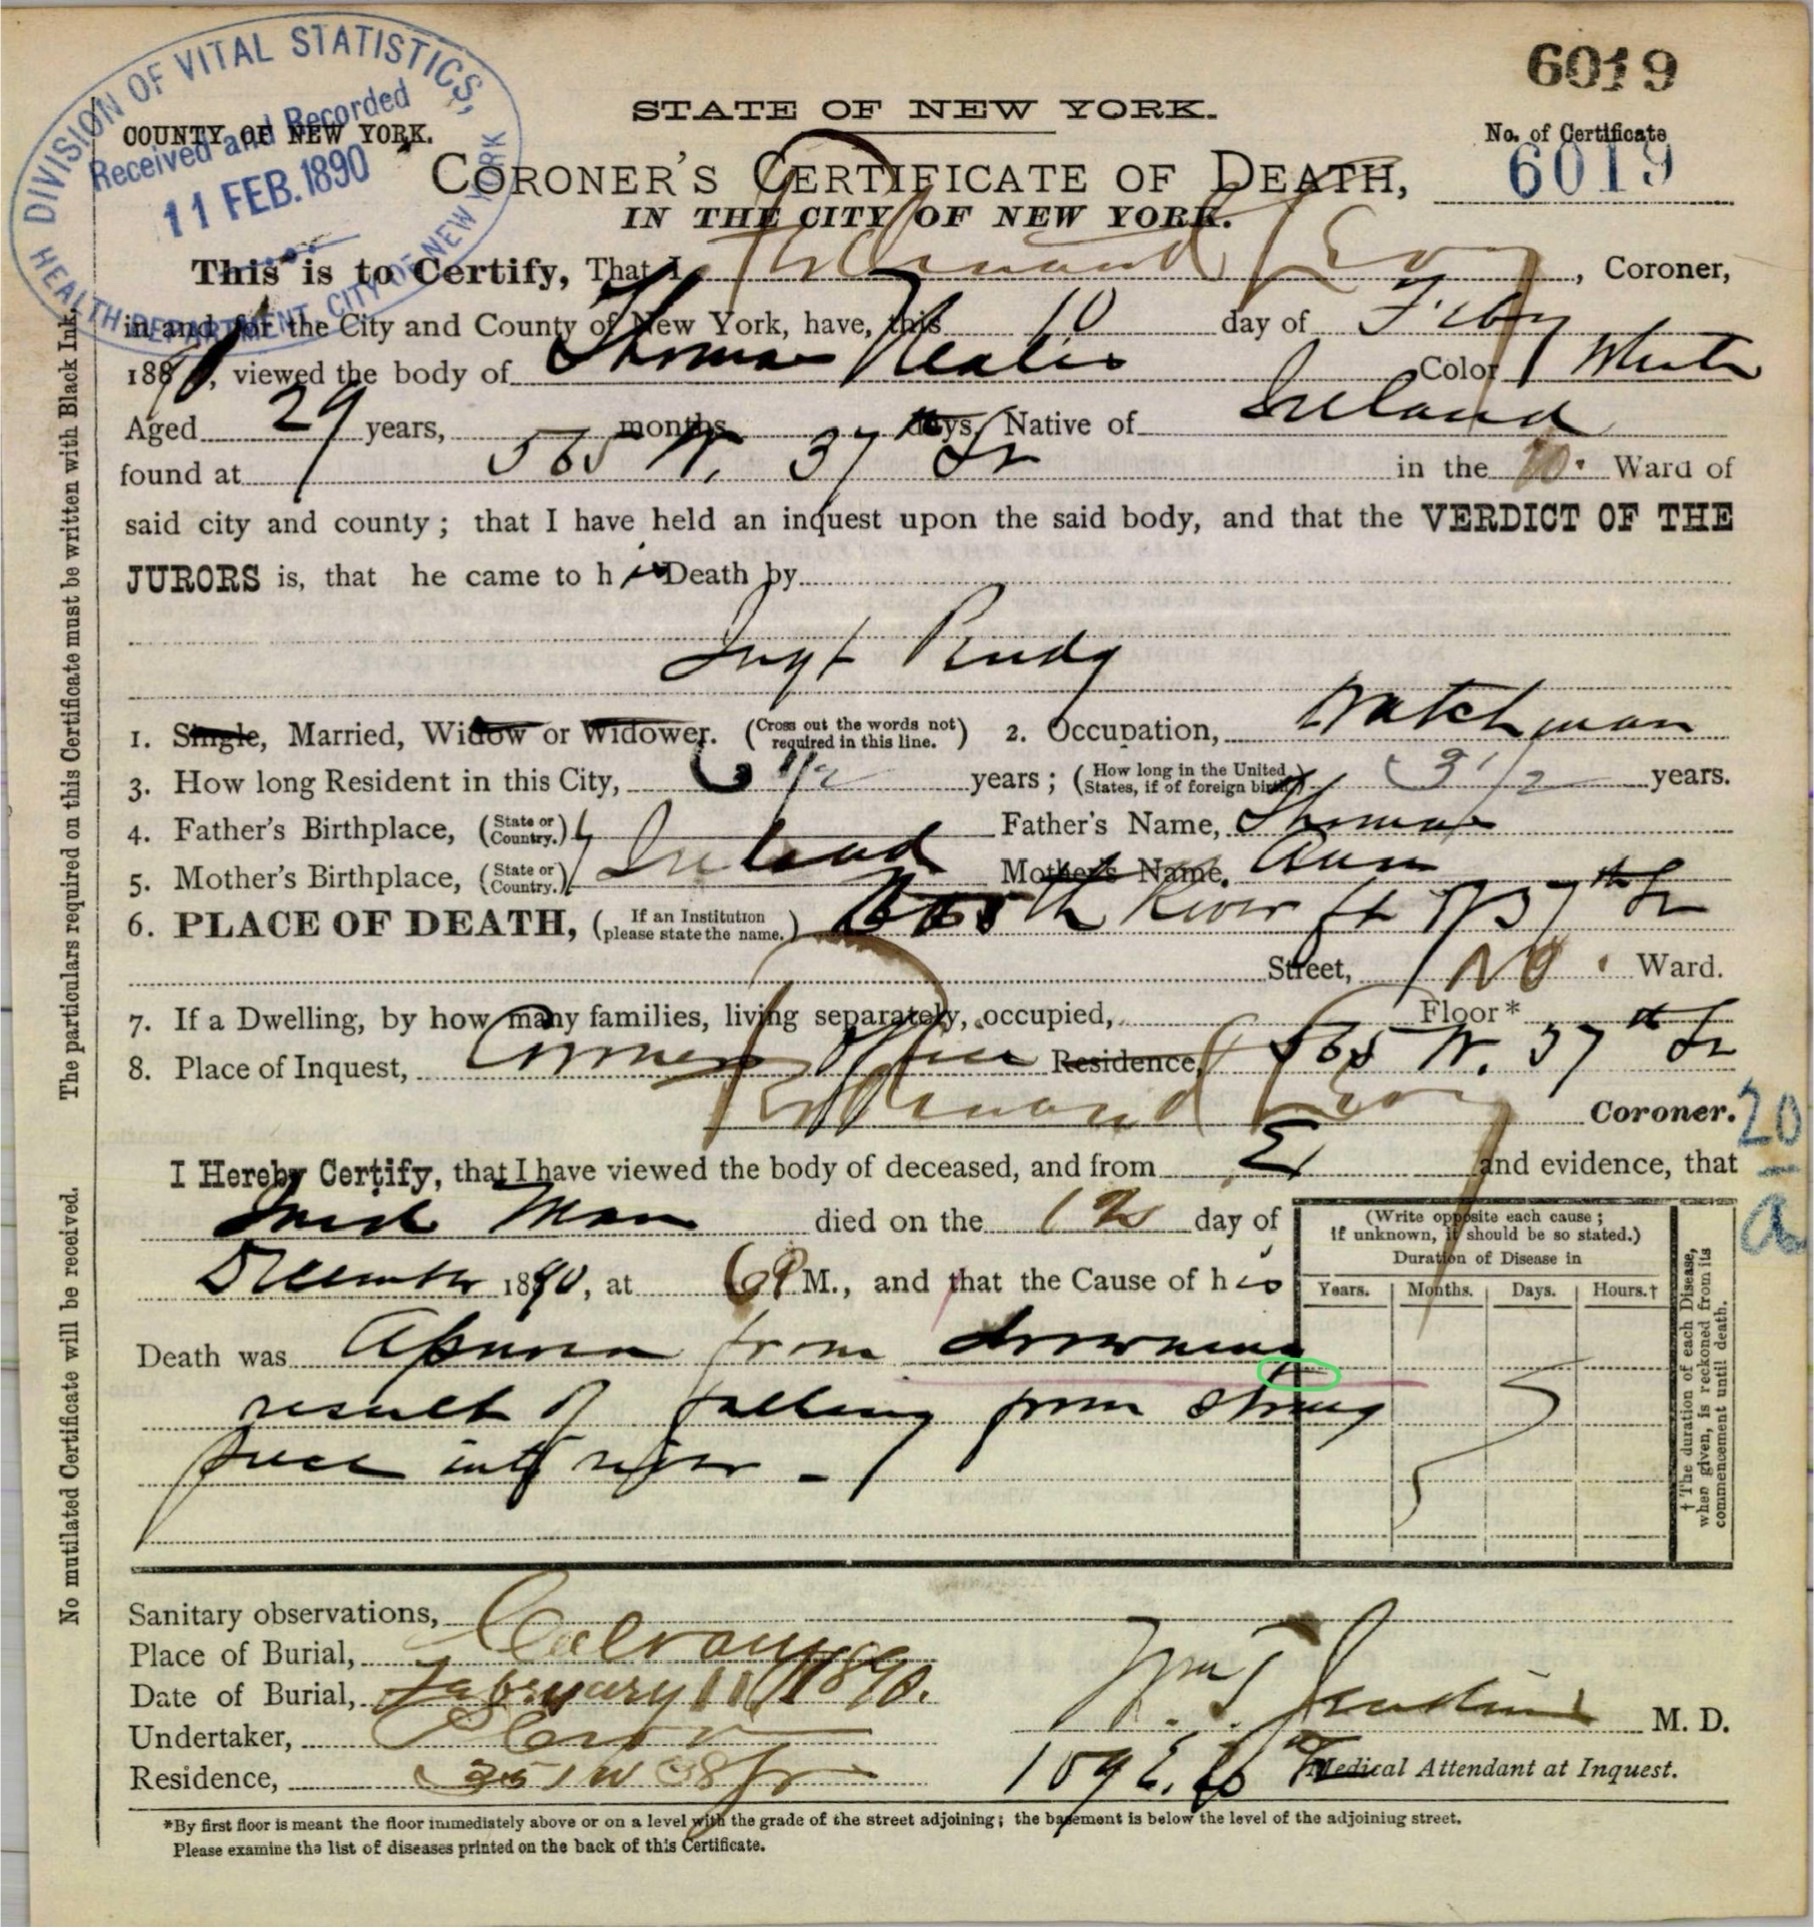 6019
DIVISION OF VITAL STATISTICS,
Received and Recorded
11 FEB. 1890
HEALTH DEPARTMENT CITY OF NEW YORK
COUNTY OF NEW YORK.
STATE OF NEW YORK.
No. of Certificate
6019
CORONER'S CERTIFICATE OF DEATH,
IN THE CITY OF NEW YORK.
This is to Certify, That I Ferdinand Levy, Coroner,
in and for the City and County of New York, have, this 10 day of Feby
1890, viewed the body of Thomas Nealis Color White
Aged 29 years, months days, Native of Ireland
found at 565 W. 37th St in the 20. Ward of
said city and county; that I have held an inquest upon the said body, and that the VERDICT OF THE
JURORS is, that he came to his Death by
Inqt Pendg
1. Single, Married, Widow or Widower. (Cross out the words not required in this line.) 2. Occupation, Watchman
3. How long Resident in this City, 3 1/2 years; (How long in the United States, if of foreign birth.) 3 1/2 years.
4. Father's Birthplace, (State or Country.) Father's Name, Thomas
5. Mother's Birthplace, (State or Country.) Ireland Mother's Name, Ann
6. PLACE OF DEATH, (If an Institution please state the name.) North River ft W 37th St
Street, 20. Ward.
7. If a Dwelling, by how many families, living separately, occupied, Floor*
8. Place of Inquest, Coroners Office Residence, 565 W. 37th St
Ferdinand Levy Coroner.
20
a
I Hereby Certify, that I have viewed the body of deceased, and from and evidence, that
Said Man died on the day of
December 1890, at 6 P M., and that the Cause of his
Death was Apnoea from drowning
result of falling from string
piece into river -
(Write opposite each cause; if unknown, it should be so stated.)
Duration of Disease in
Years. Months. Days. Hours.†
† The duration of each Disease, when given, is reckoned from its commencement until death.
Sanitary observations,
Place of Burial, Calvary
Date of Burial, February 11 1890.
Undertaker,
Residence, 351 W 38 St
Wm T. Jenkins M. D.
109 E. 26 Medical Attendant at Inquest.
*By first floor is meant the floor immediately above or on a level with the grade of the street adjoining; the basement is below the level of the adjoining street.
Please examine the list of diseases printed on the back of this Certificate.
The particulars required on this Certificate must be written with Black Ink,
No mutilated Certificate will be received.